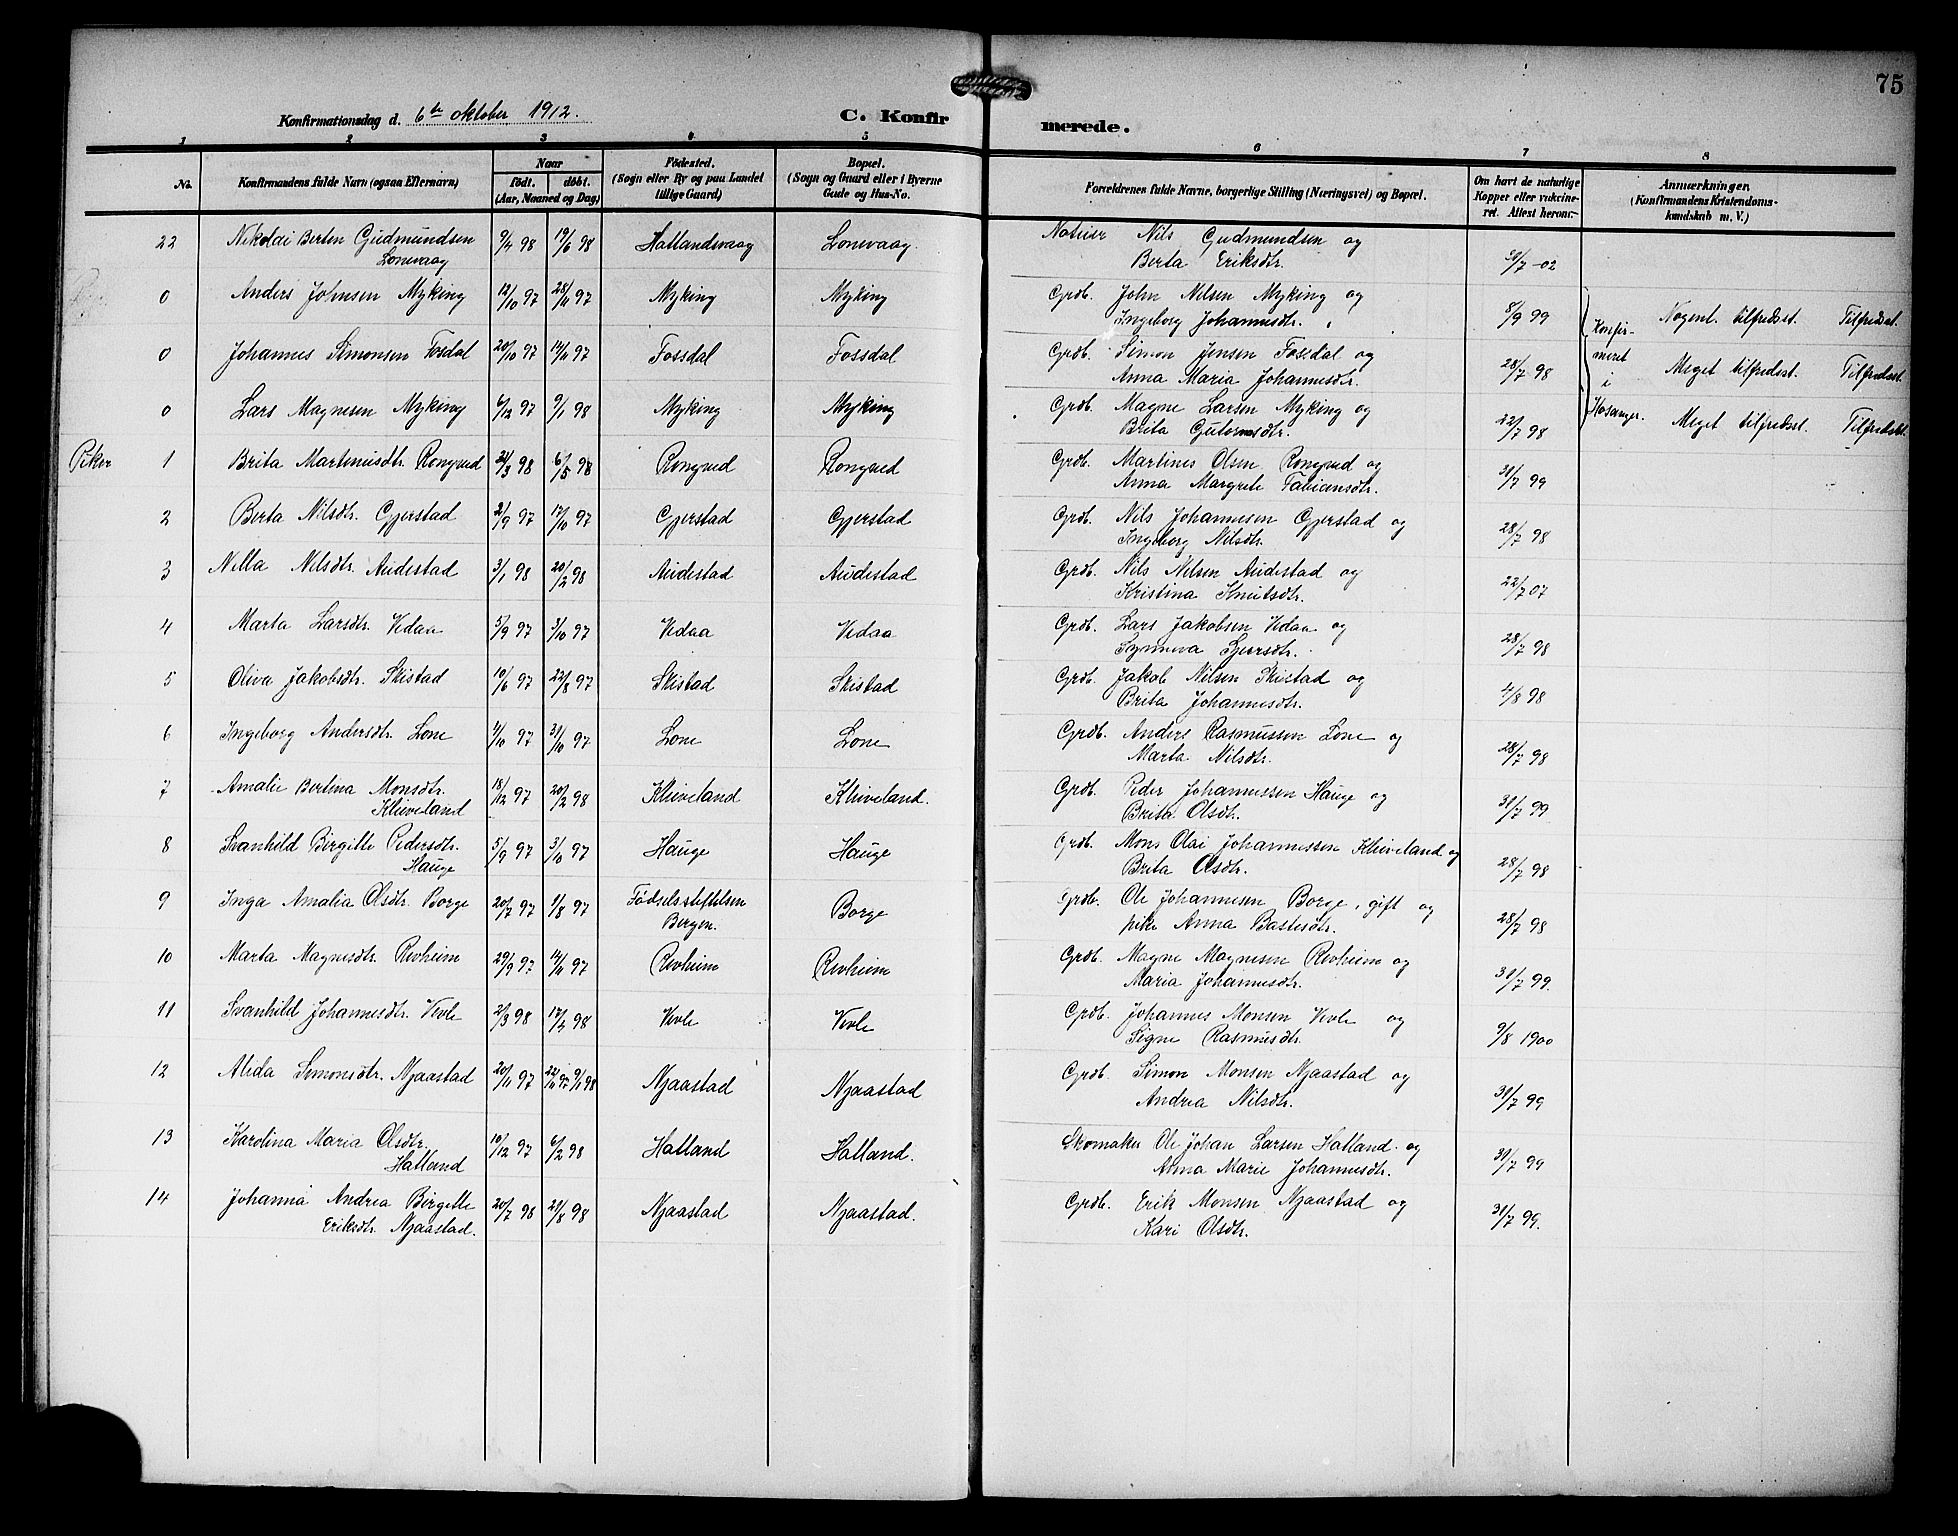 75
Konfirmationsdag d. 6te oktober 1912.
C. Konfirmerede.
1 2 3 4 5 6 7 8
No.
Konfirmandens fulde Navn (ogsaa Efternavn)
Naar
födt. döbt.
(Aar, Maaned og Dag)
Födested.
(Sogn eller By og paa Landet
tillige Gaard)
Bopæl.
(Sogn og Gaard eller i Byerne
Gade og Hus-No.
Forældrenes fulde Navne, borgerlige Stilling (Næringsvei) og Bopæl.
Om havt de naturlige
Kopper eller vakcine-
ret. Attest herom.
Anmærkninger
(Konfirmandens Kristendoms-
kundskab m. V.)
22 Nikolai Berten Gudmundsen 9/4 98 19/6 98 Hatlandsvaag Lonevaag. Noteier Nils Gudmundsen og
Lonevaag Berta Eriksdtr. 31/7 -02
0 Anders Johnsen Myking 12/10 97 28/11 97 Myking Myking Grdb. John Nilsen Myking og
Ingeborg Johannesdtr. 8/9 99 Nogenl. tilfredsst. Tilfredsst.
0 Johannes Simonsen Fosdal 20/10 97 14/11 97 Fossdal Fossdal Grdb. Simon Jensen Fossdal og
Anna Maria Johannesdtr. 28/7 98 Meget tilfredsst. Tilfredsst.
0 Lars Magnesen Myking 6/12 97 9/1 98 Myking Myking Grdb. Magne Larsen Myking og
Brita Gutormsdtr. 22/7 98 Meget tilfredsst. Tilfredsst.
Konfir-
meret
i
Hosanger.
Piker 1 Brita Martinusdtr. Rongved 24/3 98 6/5 98 Rongved Rongved Grdb. Martines Olsen Rongved og
Anna Margrete Fabiansdtr. 31/7 99
2 Berta Nilsdtr. Gjerstad 2/9 97 17/10 97 Gjerstad Gjerstad Grdb. Nils Johannesen Gjerstad og
Ingeborg Nilsdtr. 28/7 98
3 Nilla Nilsdtr. Audestad 3/1 98 20/2 98 Audestad Audestad Grdb. Nils Nilsen Audestad og
Kristina Knutsdtr. 22/7 07
4 Marta Larsdtr. Vedaa 5/9 97 3/10 97 Vedaa Vedaa Grdb. Lars Jakobsen Vedaa og
Synneva 28/7 98
5 Oliva Jakobsdtr. Skistad 10/6 97 22/8 97 Skistad Skistad Grdb. Jakob Nilsen Skistad og
Brita Johannesdtr. 4/8 98
6 Ingeborg Andersdtr. Lone 1/10 97 31/10 97 Lone Lone Grdb. Anders Rasmussen Lone og
Marta Nilsdtr. 28/7 98
7 Amalie Bertina Monsdtr. 18/12 97 20/2 98 Kleiveland Kleiveland. Grdb. Peder Johannessen Hauge og
Kleiveland Brita Olsdtr. 31/7 99
8 Svanhild Birgitte Pedersdtr. 5/9 97 3/10 97 Hauge Hauge Grdb. Mons Olai Johannessen Kleiveland og
Hauge Brita Olsdtr. 28/7 98
9 Inga Amalia Olsdtr. Borge 20/7 97 1/8 97 Födselsstiftelsen Borge Grdb. Ole Johannesen Borge, gift og
Bergen. pike Anna Bastesdtr. 28/7 98
10 Marta Magnesdtr. Revheim 29/9 97 14/11 97 Revheim Revheim Grdb. Magne Magnesen Revheim og
Maria Johannesdtr. 31/7 99.
11 Svanhild Johannesdtr. Vevle 2/3 98 17/4 98 Vevle Vevle Grdb. Johannes Monsen Vevle og
Signe Rasmusdtr. 9/8 1900
12 Alida Simonsdtr. Njaastad 20/11 97 22/11 97 9/1 98 Njaastad Njaastad Grdb. Simon Monsen Njaastad og
Andrea Nilsdtr. 31/7 99
13 Karolina Maria Olsdtr. 10/12 97 6/2 98 Hatland Hatland. Skomaker Ole Johan Larsen Hatland og
Hatland Anna Marie Johannesdtr. 31/7 99
14 Johanna Andrea Birgitte 20/7 98 21/8 98 Njaastad Njaastad. Grdb. Erik Monsen Njaastad og
Eriksdtr. Njaastad. Kari Olsdtr. 31/7 99.